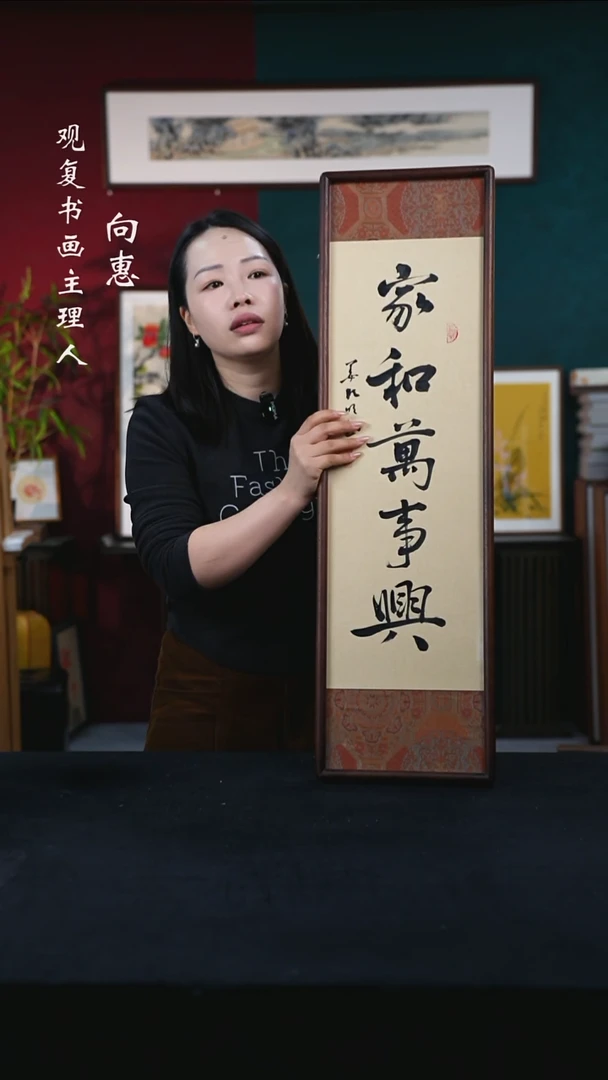 观复书画主理人
向惠
家和萬事興
Th
Fas